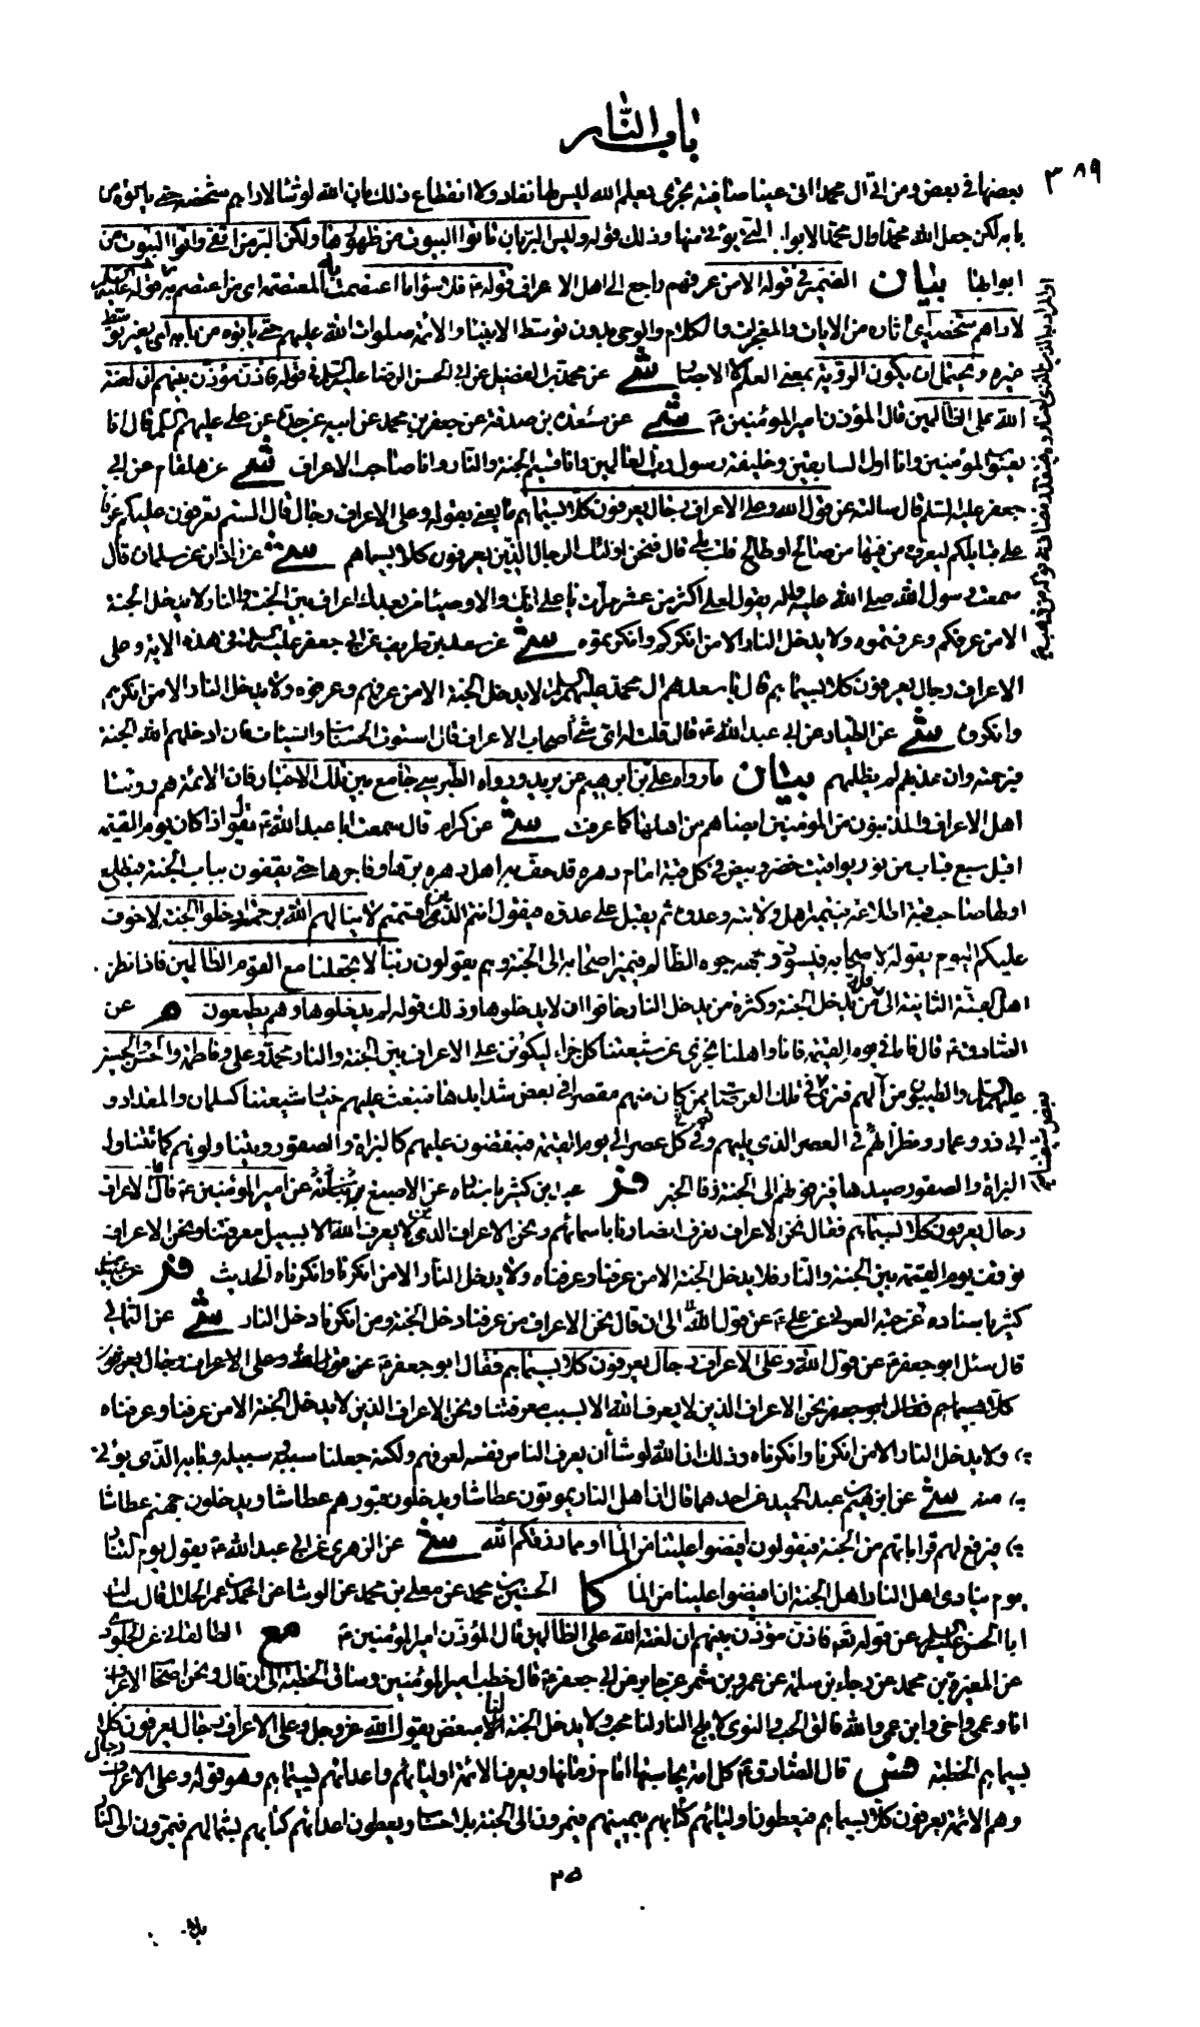 باب النار
٣٨٩
بعضها في بعض ومن اتى آل محمد اتى عينا صافية تجري بعلم الله ليس لها نفاد ولا انقطاع ذلك بان الله لو شاء لاراهم شخصه حتى ياتوه من
بابه لكن جعل الله محمدا وال محمد الابواب التي يؤتى منها وذلك قوله وليس البر بان تاتوا البيوت من ظهورها ولكن البر من اتقى واتوا البيوت من
ابوابها بيان الضمير في قوله الا من عرفهم راجع الى اهل الاعراف قوله ع فلا سواء ما اعتصمت به المعتصمة اي من اعتصم به قوله عليه السلام
لاراهم شخصه اي اثاره من الايات والمعجزات والكلام والوحي بدون توسط الانبياء والائمة صلوات الله عليهم حتى ياتوه من بابه اي بغير توسط
غيره ويحتمل ان يكون الرؤية بمعنى العلم لا الابصار شى عن محمد بن الفضيل عن ابي الحسن الرضا عليه السلام في قوله فاذن مؤذن بينهم ان لعنة
الله على الظالمين قال المؤذن امير المؤمنين ع شى عن مسعدة بن صدقة عن جعفر بن محمد عن ابيه عن جده عن علي عليهم السلام قال انا
يعسوب المؤمنين وانا اول السابقين وخليفة رسول رب العالمين وانا قسيم الجنة والنار وانا صاحب الاعراف شى عن هلقام عن ابي
جعفر عليه السلم قال سالته عن قول الله وعلى الاعراف رجال يعرفون كلا بسيماهم ما يعني بقوله وعلى الاعراف رجال قال الستم تعرفون عليكم عرفاء
على قبايلكم ليعرفوا من فيها من صالح او طالح قلت بلى قال فنحن اولئك الرجال الذين يعرفون كلا بسيماهم شى عن زاذان عن سلمان قال
سمعت رسول الله صلى الله عليه واله يقول لعلي اكثر من عشر مرات يا علي انك والاوصياء من بعدك اعراف بين الجنة والنار لا يدخل الجنة
الا من عرفكم وعرفتموه ولا يدخل النار الا من انكركم وانكرتموه شى عن سعد بن طريف عن ابي جعفر عليه السلم في هذه الاية وعلى
الاعراف رجال يعرفون كلا بسيماهم قال يا سعد هم ال محمد عليهم السلم لا يدخل الجنة الا من عرفهم وعرفوه ولا يدخل النار الا من انكرهم
وانكروه شى عن الطيار عن ابي عبد الله ع قال قلت له اي شى اصحاب الاعراف قال استوت الحسنات والسيئات فان ادخلهم الله الجنة
فبرحمته وان عذبهم لم يظلمهم بيان ما رواه علي بن ابرهيم عن بريد ورواه الطبرسي جامع بين تلك الاخبار فان الائمة هم رؤساء
اهل الاعراف والمذنبون من المؤمنين ايضا هم من اهلها كما عرفت شى عن كرام قال سمعت ابا عبد الله ع يقول اذا كان يوم القيمة
اقبل سبع قباب من نور يواقيت خضر وبيض في كل قبة امام دهره قد حف به اهل دهره برها وفاجرها حتى يقفون بباب الجنة فيطلع
اولها صاحب قبة اطلاعة فيميز اهل ولايته وعدوه ثم يقبل على عدوه فيقول انتم الذين اقسمتم لا ينالهم الله برحمة ادخلوا الجنة لا خوف
عليكم اليوم يقوله لاصحابه فيسود وجوه الظالم فيميز اصحابه الى الجنة وهم يقولون ربنا لا تجعلنا مع القوم الظالمين فاذا نظر
اهل القبة الثانية الى قلة من يدخل الجنة وكثرة من يدخل النار خافوا ان لا يدخلوها وذلك قوله لم يدخلوها وهم يطمعون م عن
الصادق ع قال فاما في يوم القيمة فانا واهلنا نجزي عن شيعتنا كل جزاء ليكونن على الاعراف بين الجنة والنار محمد وعلي وفاطمة والحسن والحسين
عليهم السلم والطيبون من آلهم فنرى في تلك العرصات بعض شيعتنا ممن كان منهم مقصرا في بعض شدايدها فنبعث عليهم خيار شيعتنا كسلمان والمقداد و
ابي ذر وعمار ونظرائهم في العصر الذي يليهم وفي كل عصر الى يوم القيمة فينقضون عليهم كالبزاة والصقور ويتناولونهم كما تتناول
البزاة والصقور صيدها فيزفونهم الى الجنة زفا الخبر فر عبيد بن كثير باسناده عن الاصبغ بن نباتة عن امير المؤمنين ع قال الاعراف
رجال يعرفون كلا بسيماهم فقال نحن الاعراف نعرف انصارنا باسمائهم ونحن الاعراف الذين لا يعرف الله الا بسبيل معرفتنا ونحن الاعراف
نوقف يوم القيمة بين الجنة والنار فلا يدخل الجنة الا من عرفنا وعرفناه ولا يدخل النار الا من انكرنا وانكرناه الحديث فر عن عبيد بن
كثير باسناده عن حبة العرني عن علي ع عن قول الله الى ان قال نحن الاعراف من عرفنا دخل الجنة ومن انكرنا دخل النار شى عن الثمالي
قال سئل ابو جعفر ع عن قول الله وعلى الاعراف رجال يعرفون كلا بسيماهم فقال ابو جعفر ع عن قول الله وعلى الاعراف رجال يعرفون
كلا بسيماهم فقال ابو جعفر نحن الاعراف الذين لا يعرف الله الا بسبب معرفتنا ونحن الاعراف الذين لا يدخل الجنة الا من عرفنا وعرفناه
ولا يدخل النار الا من انكرنا وانكرناه وذلك ان الله لو شاء ان يعرف الناس نفسه لعرفهم ولكنه جعلنا سببه وسبيله وبابه الذي يؤتى
منه شى عن ابرهيم بن عبد الحميد عن احدهما قال ان اهل النار يموتون عطاشا ويدخلون قبورهم عطاشا ويدخلون جهنم عطاشا
فيرفع لهم قراباتهم من الجنة فيقولون افيضوا علينا من الماء او مما رزقكم الله شى عن الزهري عن ابي عبد الله ع يقول يوم التناد
يوم ينادي اهل النار اهل الجنة ان افيضوا علينا من الماء كا الحسين بن محمد عن معلى بن محمد عن الوشا عن احمد بن عمر الحلال قال سالت
ابا الحسن عليه السلم عن قوله تعه فاذن مؤذن بينهم ان لعنة الله على الظالمين قال المؤذن امير المؤمنين ع مع الطالقاني عن الجلودي
عن المغيرة بن محمد عن رجاء بن سلمة عن عمرو بن شمر عن جابر عن ابي جعفر ع قال خطب امير المؤمنين وساق الخطبة الى ان قال ونحن اصحاب الاعراف
انا وعمي واخي وابن عمي والله فالق الحب والنوى لا يلج النار لنا محب ولا يدخل الجنة لنا مبغض يقول الله عز وجل وعلى الاعراف رجال يعرفون كلا
بسيماهم الخطبة فس قال الصادق ع كل امة يحاسبها امام زمانها ويعرف الائمة اوليائهم واعدائهم بسيماهم وهو قوله وعلى الاعراف رجال
وهم الائمة يعرفون كلا بسيماهم فيعطون اوليائهم كتابهم بيمينهم فيمرون الى الجنة بلا حساب ويعطون اعدائهم كتابهم بشمالهم فيمرون الى النار
٢٥